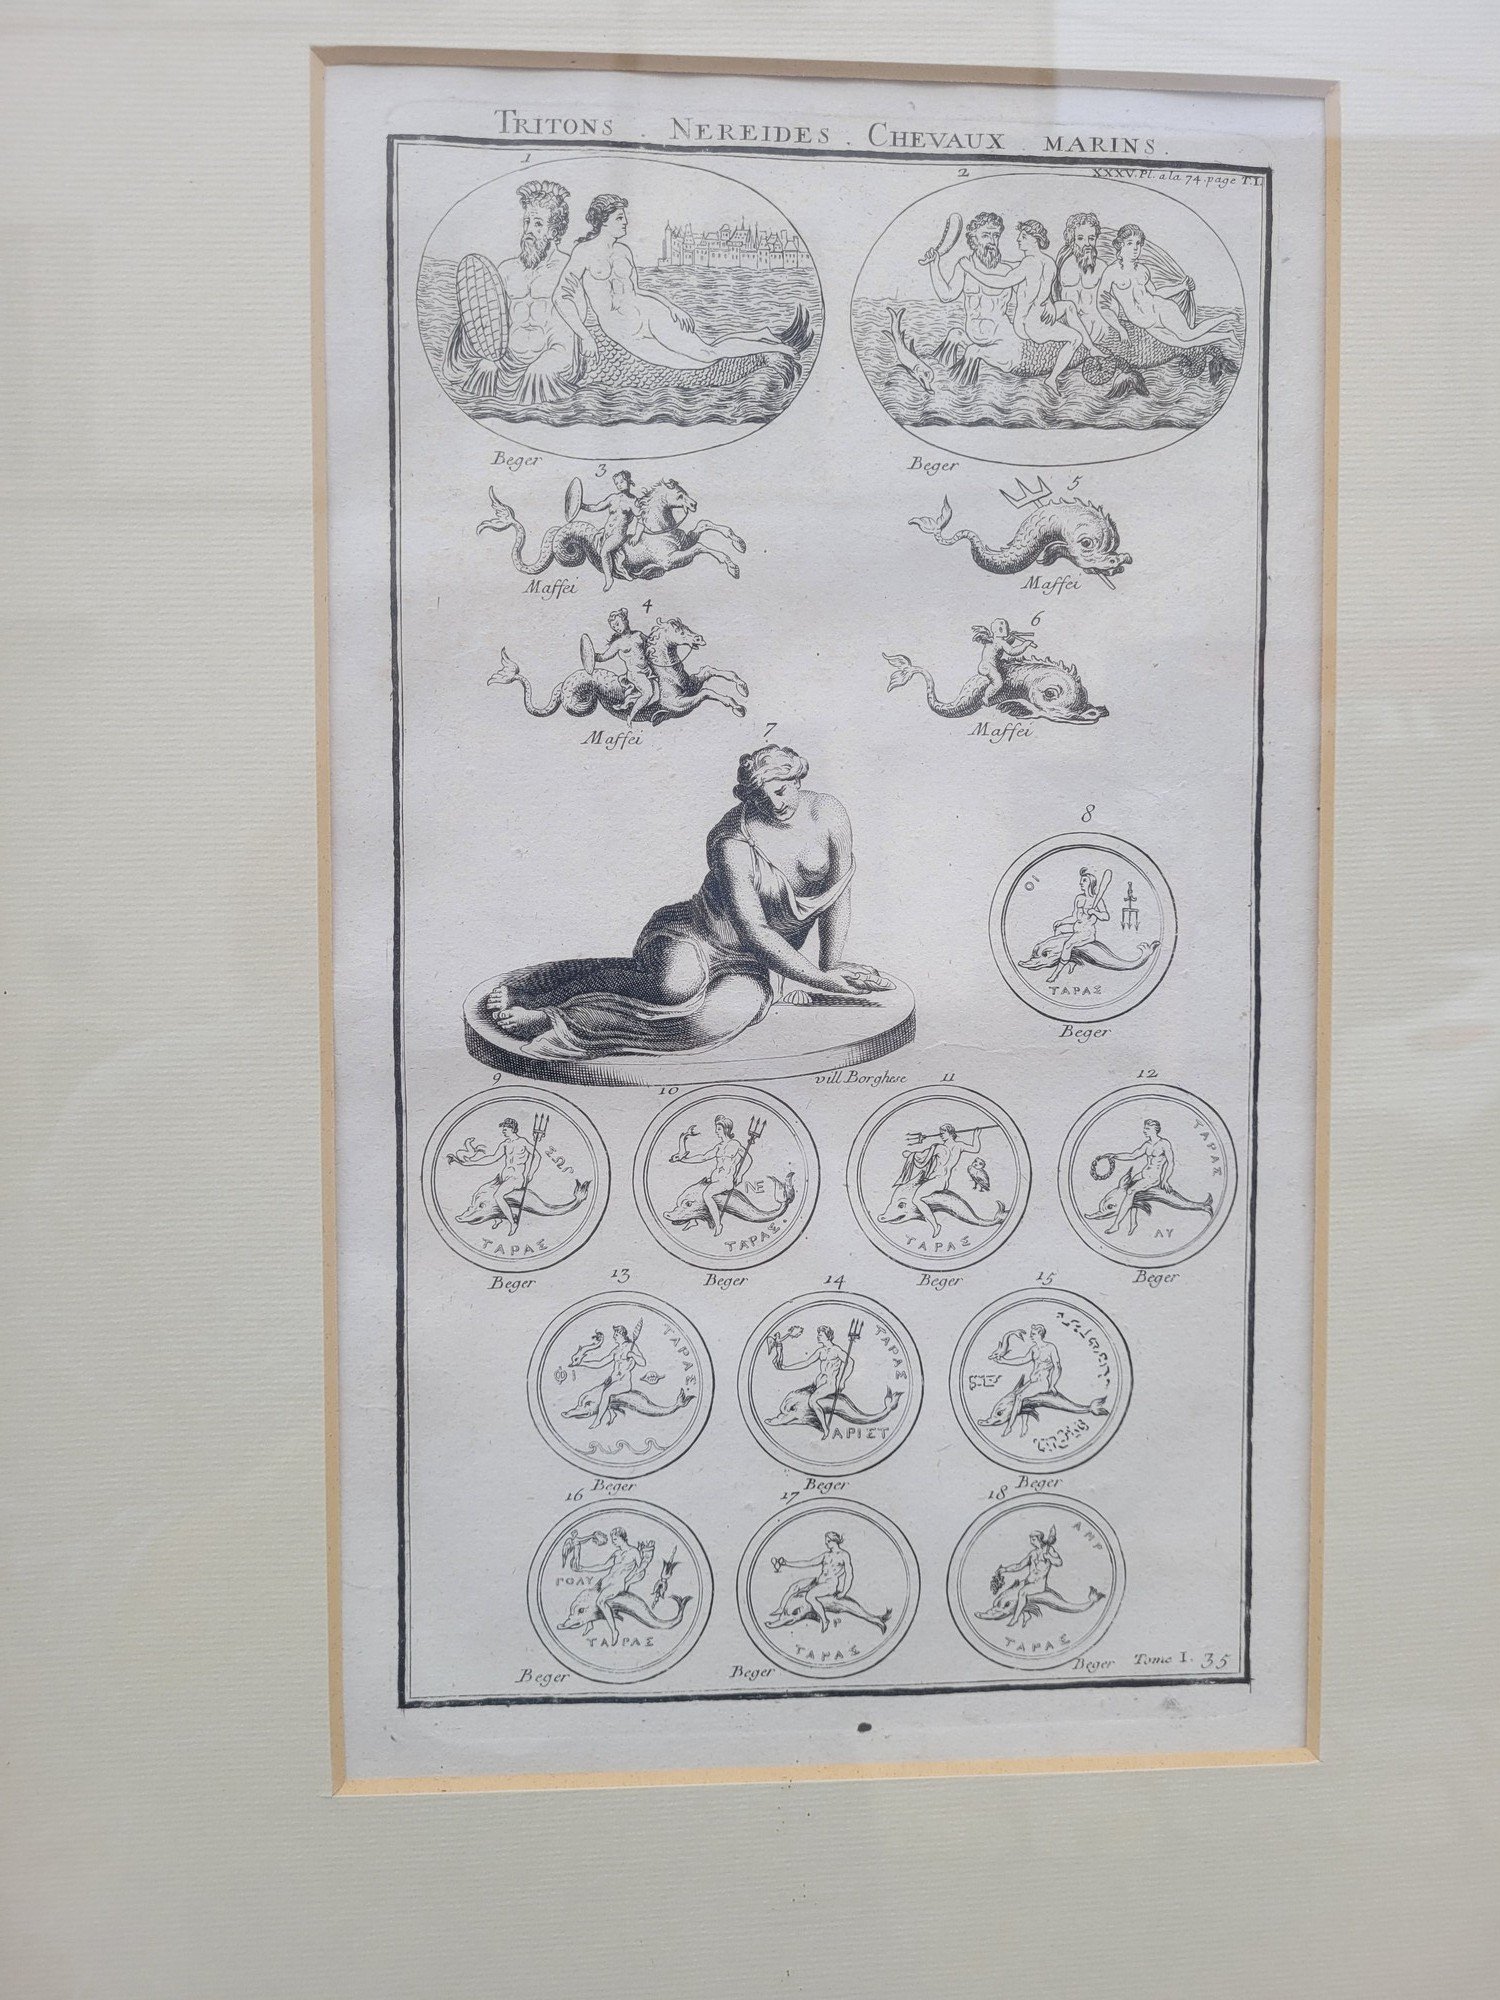 TRITONS . NEREIDES . CHEVAUX . MARINS .
XXXV. Pl. a la 74. page T. I.
1
2
Beger
Beger
3
5
Maffei
Maffei
4
6
Maffei
Maffei
7
8
ΟΙ
ΤΑΡΑΣ
Beger
vill Borghese
9
10
11
12
ΣΩΓ
ΤΑΡΑΣ
ΤΑΡΑΣ.
ΤΑΡΑΣ
ΤΑΡΑΣ
ΛΥ
Beger
Beger
Beger
Beger
13
14
15
ΤΑΡΑΣ.
ΦΙ
ΤΑΡΑΣ
ΑΡΙΣΤ
Beger
Beger
Beger
16
17
18
ΓΟΛΥ
ΤΑΡΑΣ
Ρ
ΤΑΡΑΣ
ΤΑΡΑΣ
Beger
Beger
Beger
Tome I. 35